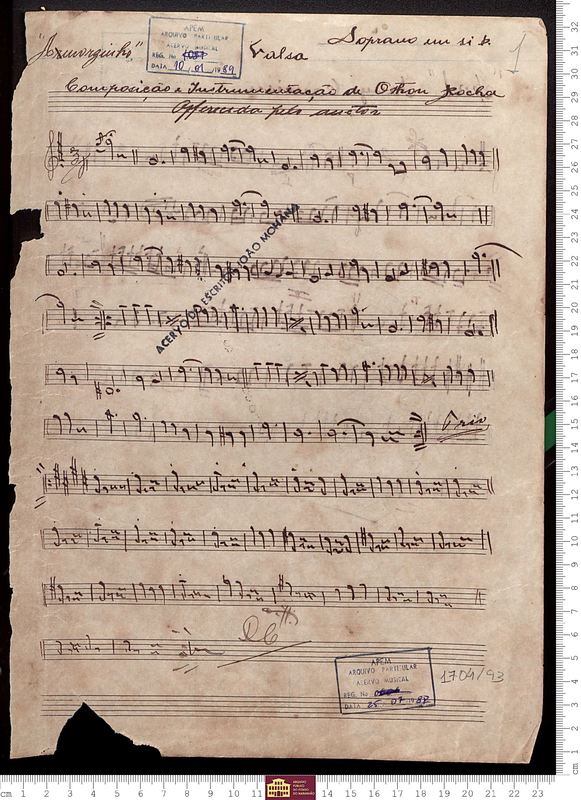 Soprano em si b. 1
Valsa
APEM
ARQUIVO PARTICULAR
ACERVO MUSICAL
REG. No
DATA 10 01 1989
Composição e Instrumentação de Othon Rocha
Offerecida pelo auctor
ACERVO DO ESCRITOR JOÃO MOHANA
Trio
DC
APEM
ARQUIVO PARTICULAR
ACERVO MUSICAL
REG. No
DATA 25 07
1704/93
cm 1 2 3 4 5 6 7 8 9 10 11 12 13 14 15 16 17 18 19 20 21 22 23
cm 1 2 3 4 5 6 7 8 9 10 11 12 13 14 15 16 17 18 19 20 21 22 23 24 25 26 27 28 29 30 31 32